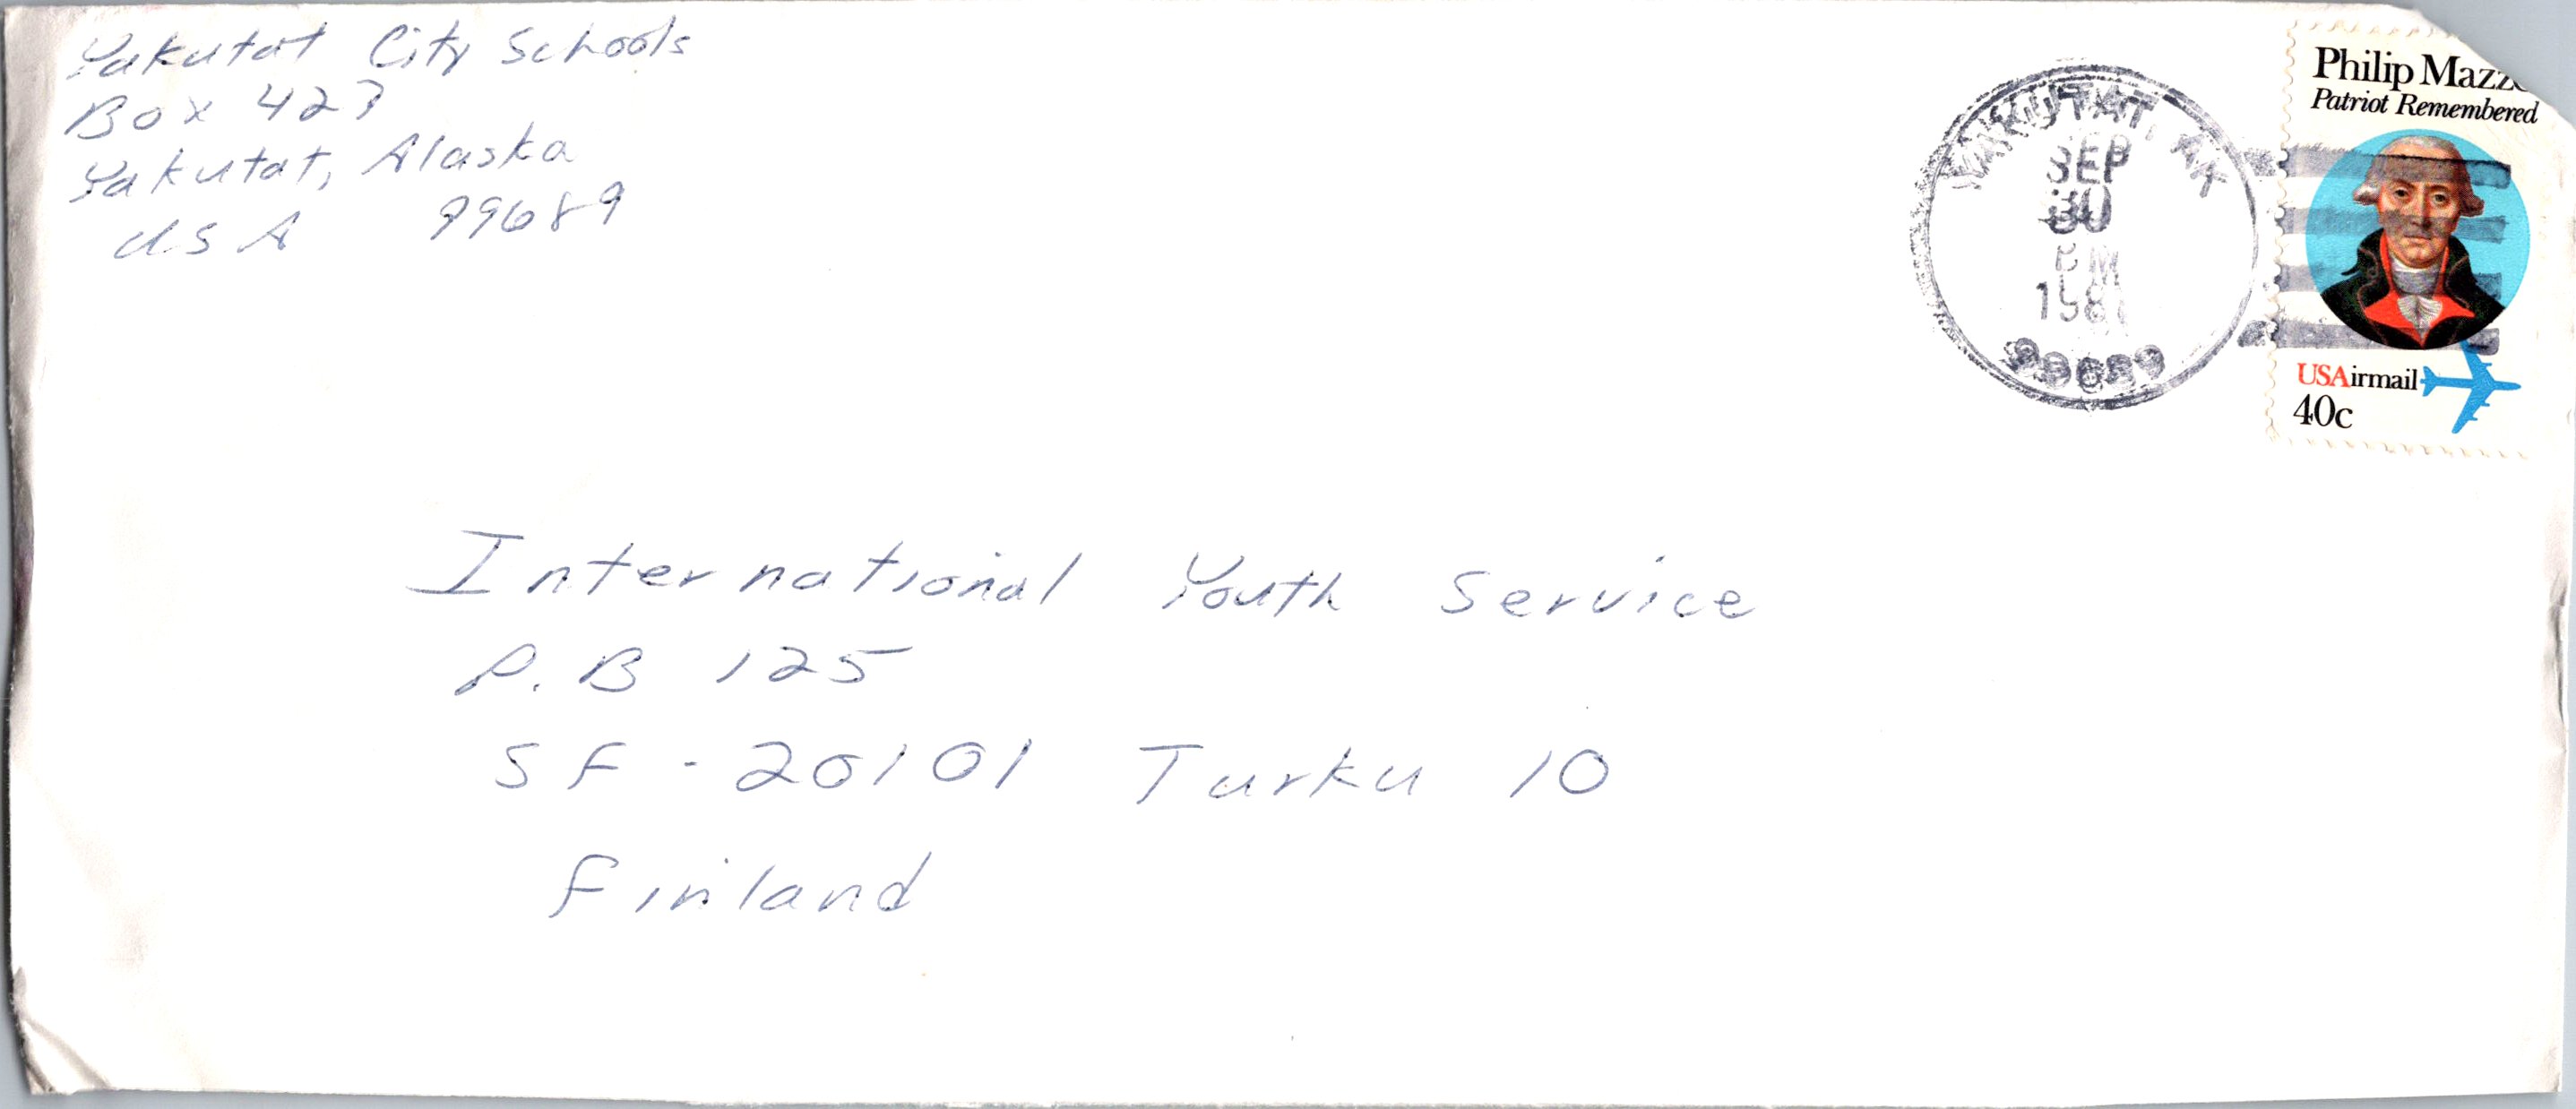 Yakutat City Schools
Box 427
Yakutat, Alaska
USA 99689
YAKUTAT, AK
SEP
30
PM
198
99689
Philip Mazz
Patriot Remembered
USAirmail
40c
International Youth Service
P.B 125
SF-20101 Turku 10
Finland